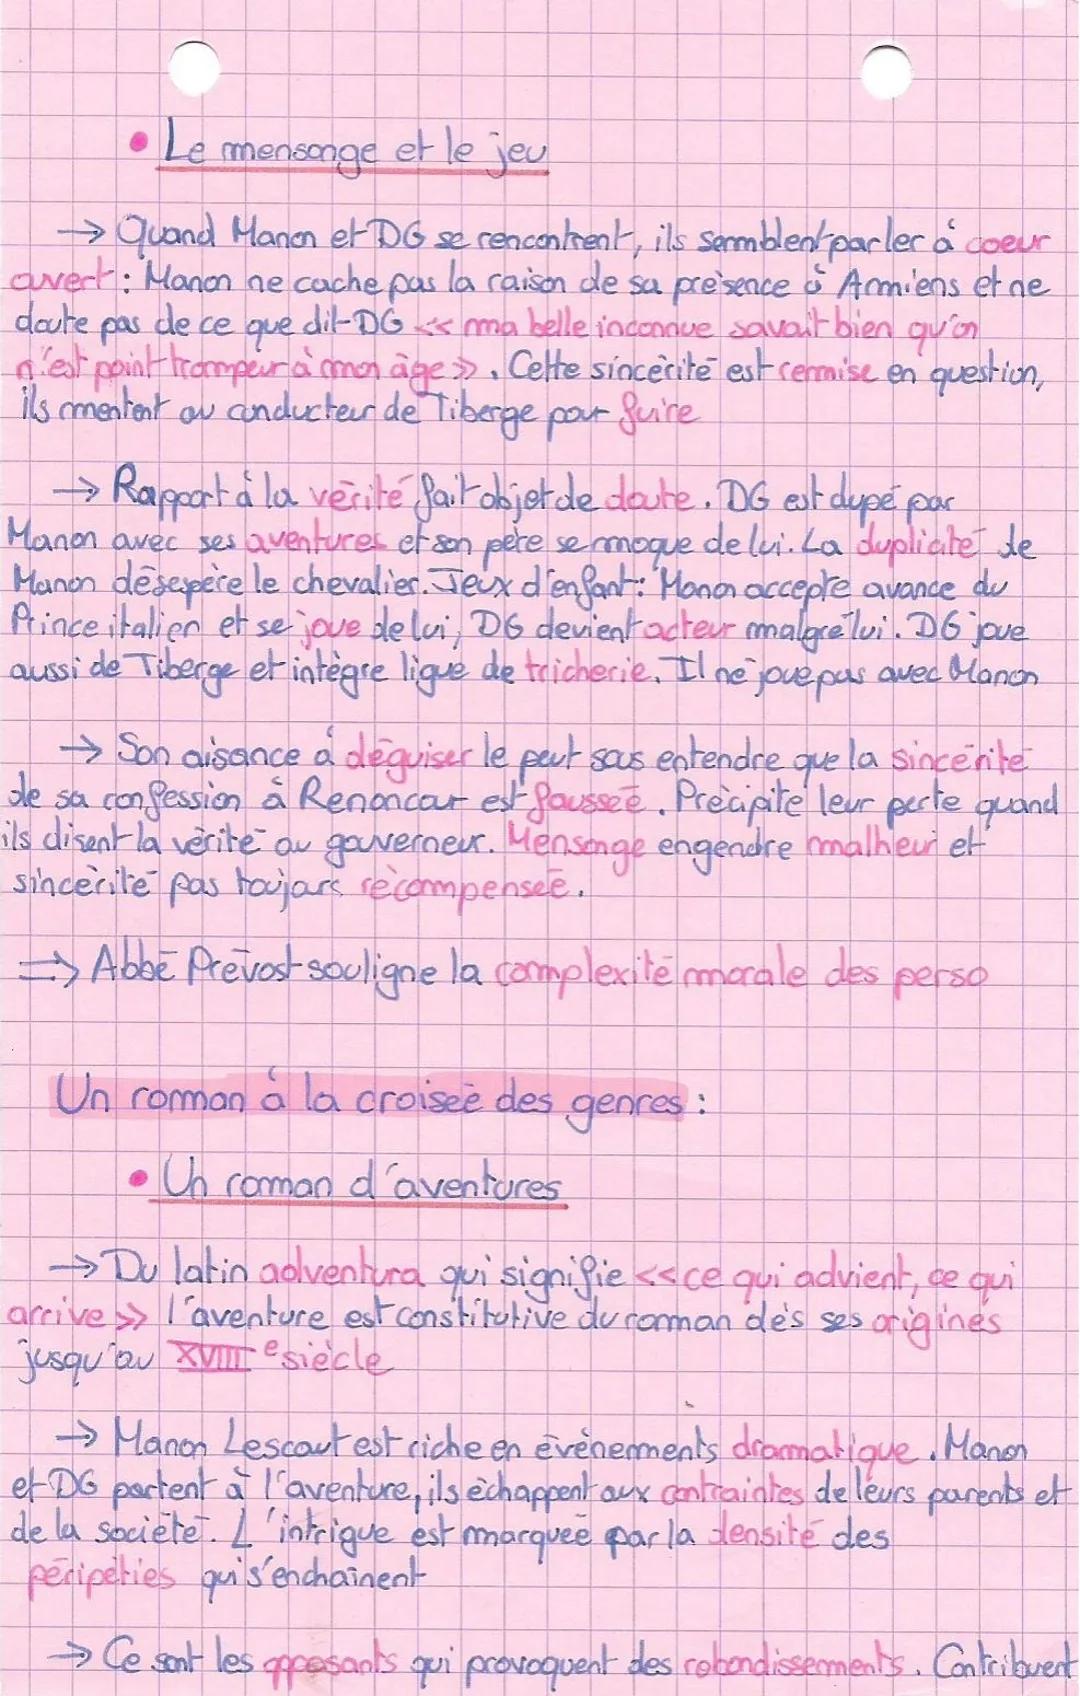 • Le mensonge et le jeu
→ Quand Manon et DG se rencontrent, ils semmblent parler à coeur
ouvert : Manon ne cache pas la raison de sa présence à Ammiens et ne
doute pas de ce que dit DG << ma belle inconnue savait bien qu'on
n'est point trompeur à mon âge >>. Cette sincérité est remise en question,
ils mentent au conducteur de Tiberge pour fuire
→ Rapport à la vérité fait objet de doute. DG est dupé par
Manon avec ses aventures et son père se moque de lui. La duplicité de
Manon désespère le chevalier. Jeux d'enfant : Manon accepte avance du
Prince italien et se joue de lui, DG devient acteur malgré lui. DG joue
aussi de Tiberge et intègre ligue de tricherie. Il ne joue pas avec Manon
→ Son aisance à déguiser le peut sous entendre que la sincérité
de sa confession à Renoncour est faussée. Précipite leur perte quand
ils disent la vérité au gouverneur. Mensonge engendre malheur et
sincérité pas toujours récompensée.
=> Abbé Prévost souligne la complexité morale des perso
Un roman à la croisée des genres :
• Un roman d'aventures
→ Du latin adventura qui signifie << ce qui advient, ce qui
arrive >> l'aventure est constitutive du roman dès ses origines
jusqu'au XVIII e siècle
→ Manon Lescaut est riche en évènements dramatique. Manon
et DG partent à l'aventure, ils échappent aux contraintes de leurs parents et
de la société. L'intrigue est marquée par la densité des
péripéties qui s'enchaînent
→ Ce sont les opposants qui provoquent des rebondissements. Contribuent